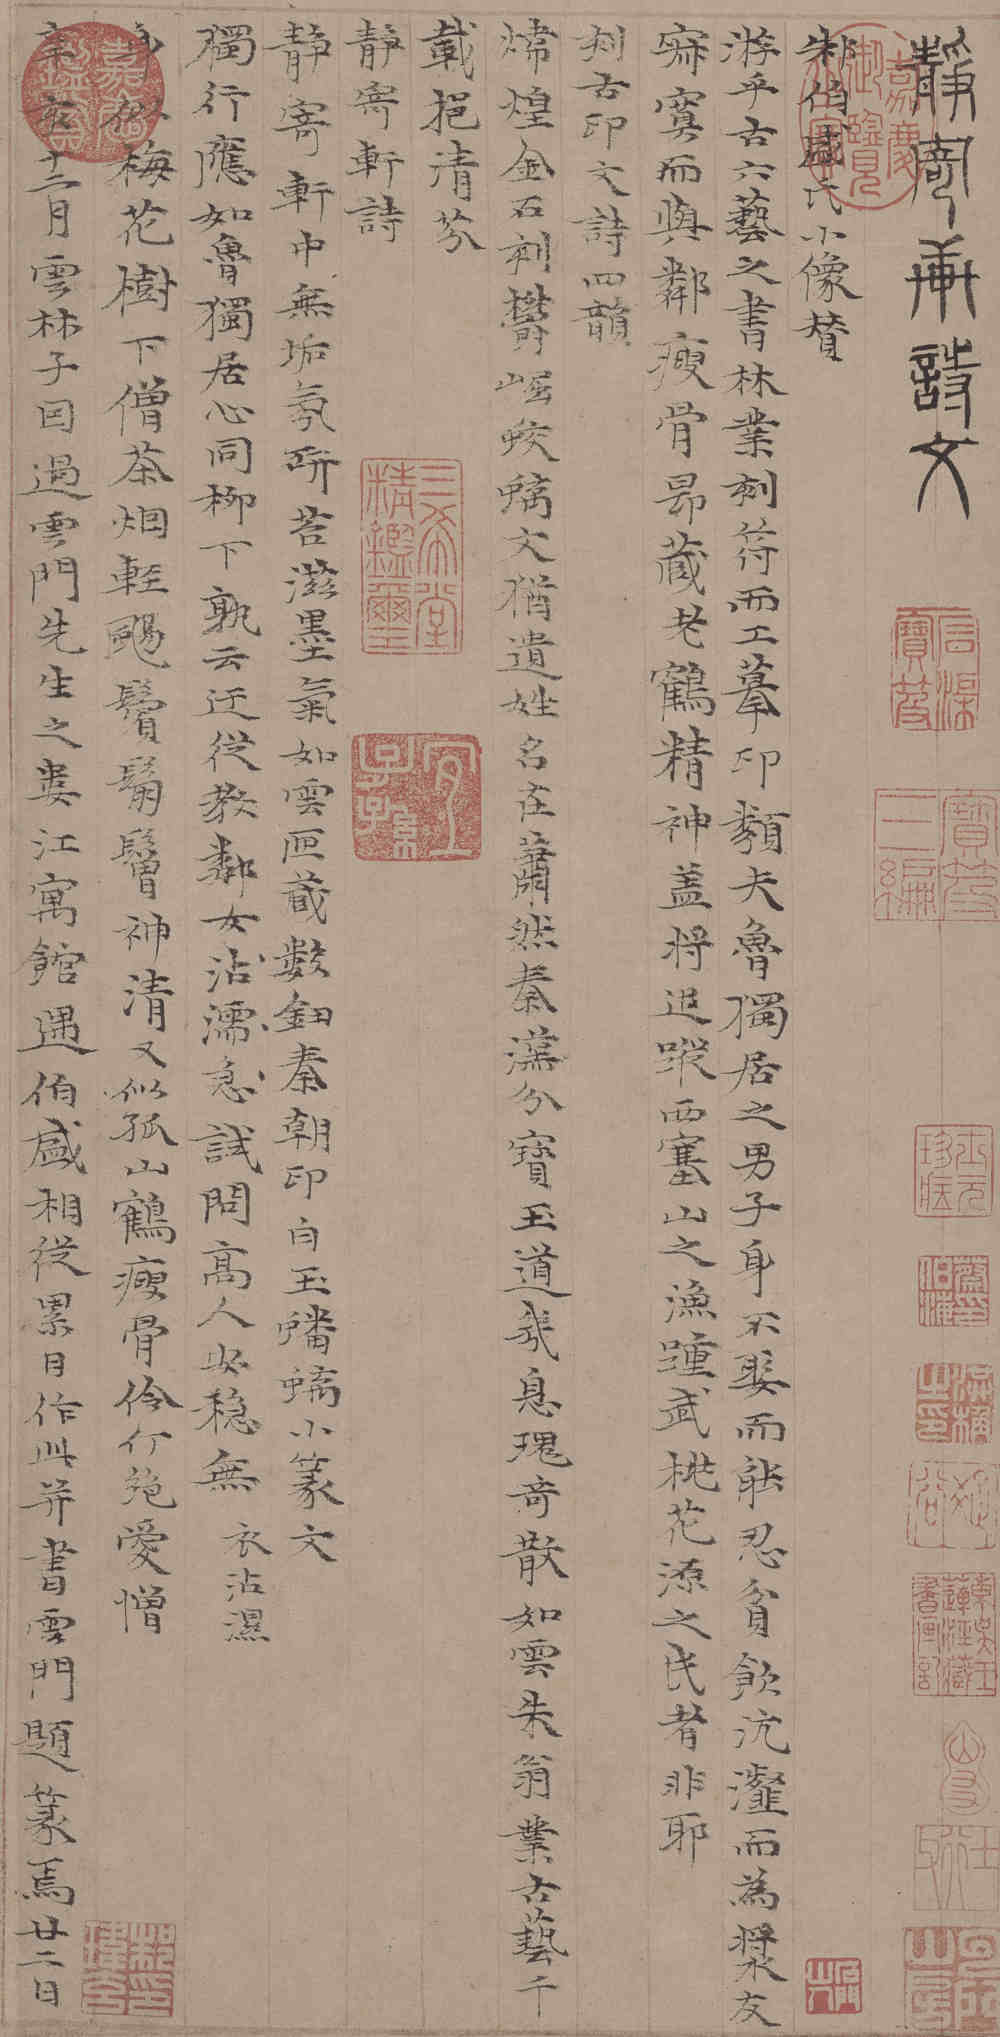 靜寄軒詩文
朱伯盛氏小像贊
游乎古六藝之書林業刻符而工摹印類夫魯獨居之男子身不娶而能忍貧飲沆瀣而為漿友
寂寞而與鄰瘦骨昂藏老鶴精神蓋將追蹤西塞山之漁踵武桃花源之民者非耶
刻古印文詩四韻
煒煌金石刻鬱崛蛟螭文猶遺姓名在蕭然秦漢分寶玉道哉息瑰奇散如雲朱翁業古藝千
載挹清芬
靜寄軒詩
靜寄軒中無垢氛研苔滋墨氣如雲匣藏數鈕秦朝印白玉蟠螭小篆文
獨行應如魯獨居心同柳下孰云迂從教鄰女沾濡急試問高人安穩無 衣沾濕
梅花樹下僧茶烟輕颺鬢鬅鬙神清又似孤山鶴瘦骨伶仃絕愛憎
十二月雲林子因過雲門先生之婁江寓館遇伯盛相從累日作此并書雲門題篆焉廿二日
嘉慶御覽之寶
嘉慶鑑賞
三希堂精鑑璽
宜子孫
石渠寶笈
寶笈三編